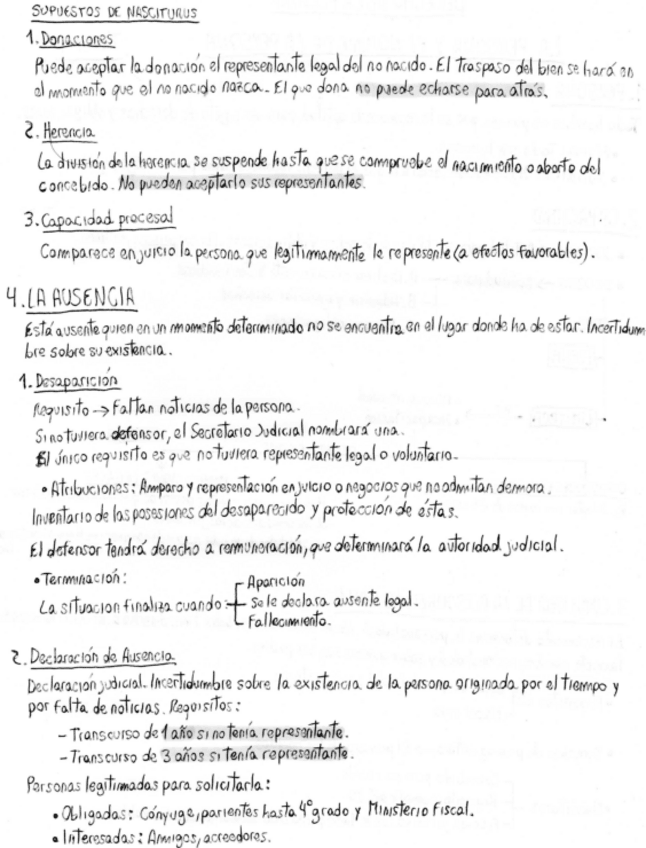 SUPUESTOS DE NASCITURUS
1. Donaciones
Puede aceptar la donación el representante legal del no nacido. El traspaso del bien se hará en
el momento que el no nacido nazca. El que dona no puede echarse para atrás.
2. Herencia
La división de la herencia se suspende hasta que se compruebe el nacimiento o aborto del
concebido. No pueden aceptarlo sus representantes.
3. Capacidad procesal
Comparece en juicio la persona que legítimamente le represente (a efectos favorables).
4. LA AUSENCIA
Está ausente quien en un momento determinado no se encuentra en el lugar donde ha de estar. Incertidum
bre sobre su existencia.
1. Desaparición
Requisito → Faltan noticias de la persona.
Si no tuviera defensor, el Secretario Judicial nombrará una.
El único requisito es que no tuviera representante legal o voluntario.
• Atribuciones: Amparo y representación en juicio o negocios que no admitan demora.
Inventario de las posesiones del desaparecido y protección de éstas.
El defensor tendrá derecho a remuneración, que determinará la autoridad judicial.
• Terminación:
La situación finaliza cuando:
Aparición
Se le declara ausente legal.
Fallecimiento.
2. Declaración de Ausencia
Declaración judicial. Incertidumbre sobre la existencia de la persona originada por el tiempo y
por falta de noticias. Requisitos:
- Transcurso de 1 año si no tenía representante.
- Transcurso de 3 años si tenía representante.
Personas legitimadas para solicitarla:
• Obligadas: Cónyuge, parientes hasta 4º grado y Ministerio Fiscal.
• Interesadas: Amigos, acreedores.